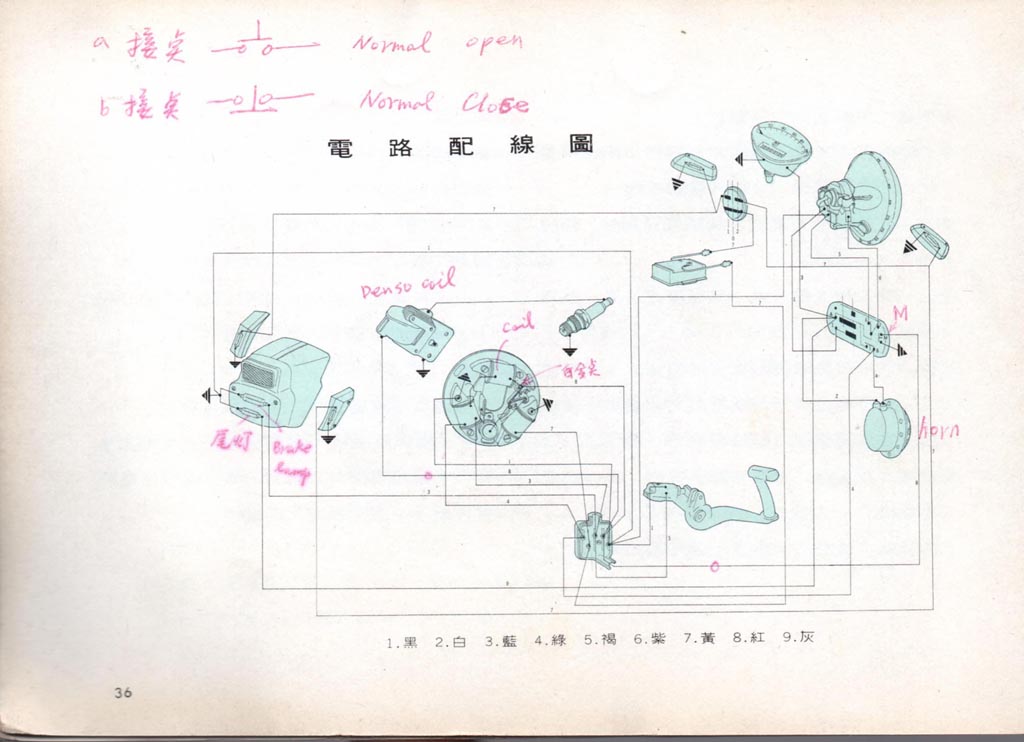 a 接点 Normal open
b 接点 Normal Close
電路配線圖
Denso coil
coil
白金点
M
horn
尾灯
Brake
lamp
1.黑 2.白 3.藍 4.綠 5.褐 6.紫 7.黃 8.紅 9.灰
36